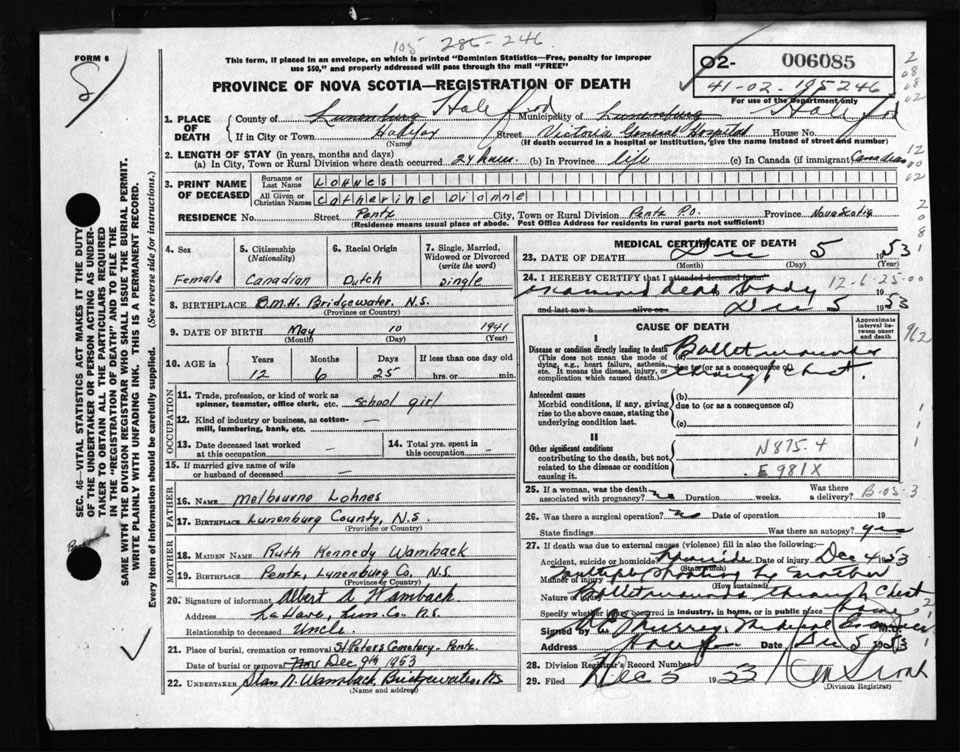 105 285-246
FORM 6
This form, if placed in an envelope, on which is printed "Dominion Statistics—Free, penalty for improper
use $50," and properly addressed will pass through the mail "FREE"
02- 006085
41-02-195246
For use of the Department only
PROVINCE OF NOVA SCOTIA—REGISTRATION OF DEATH
SEC. 46—VITAL STATISTICS ACT MAKES IT THE DUTY
OF THE UNDERTAKER OR PERSON ACTING AS UNDER-
TAKER TO OBTAIN ALL THE PARTICULARS REQUIRED
IN THE "REGISTRATION OF DEATH" AND TO FILE THE
SAME WITH THE DIVISION REGISTRAR WHO SHALL ISSUE THE BURIAL PERMIT.
WRITE PLAINLY WITH UNFADING INK. THIS IS A PERMANENT RECORD.
Every item of information should be carefully supplied. (See reverse side for instructions.)
1. PLACE OF DEATH
County of Lunenburg Municipality of Lunenburg
If in City or Town Halifax Street Victoria General Hospital House No.
(Name) (If death occurred in a hospital or institution, give the name instead of street and number)
2. LENGTH OF STAY (in years, months and days)
(a) In City, Town or Rural Division where death occurred 24 hours. (b) In Province life (c) In Canada (if immigrant) Canadian
3. PRINT NAME OF DECEASED
Surname or Last Name Lohnes
All Given or Christian Names Catherine Dianne
RESIDENCE No. Street Pentz City, Town or Rural Division Pentz P.O. Province Nova Scotia
(Residence means usual place of abode. Post Office Address for residents in rural parts not sufficient)
4. Sex
Female
5. Citizenship (Nationality)
Canadian
6. Racial Origin
Dutch
7. Single, Married, Widowed or Divorced (write the word)
Single
8. BIRTHPLACE D.M.H. Bridgewater. N.S.
(Province or Country)
9. DATE OF BIRTH May 10 1941
(Month) (Day) (Year)
10. AGE in Years Months Days If less than one day old
12 6 25 hrs. or min.
OCCUPATION
11. Trade, profession, or kind of work as spinner, teamster, office clerk, etc. school girl
12. Kind of industry or business, as cotton-mill, lumbering, bank, etc. —
13. Date deceased last worked at this occupation —
14. Total yrs. spent in this occupation —
15. If married give name of wife or husband of deceased —
FATHER
16. NAME Melbourne Lohnes
17. BIRTHPLACE Lunenburg County, N.S.
(Province or Country)
MOTHER
18. MAIDEN NAME Ruth Kennedy Wamback
19. BIRTHPLACE Pentz, Lunenburg Co. N.S.
(Province or Country)
20. Signature of informant Albert A Wamback
Address LaHave, Lun. Co. N.S.
Relationship to deceased Uncle.
21. Place of burial, cremation or removal St Peters Cemetery - Pentz.
Date of burial or removal Nov Dec 9th 1953
22. UNDERTAKER Stan N. Wamback, Bridgewater, NS
(Name and address)
MEDICAL CERTIFICATE OF DEATH
23. DATE OF DEATH Dec 5 1953
(Month) (Day) (Year)
24. I HEREBY CERTIFY that I attended deceased from
examined dead body 12-6-25-00
and last saw h alive on Dec 5 1953
CAUSE OF DEATH
Approximate interval between onset and death
I
Disease or condition directly leading to death
(This does not mean the mode of dying, e.g., heart failure, asthenia, etc. It means the disease, injury, or complication which caused death.)
(a) Bullet wounds
due to (or as a consequence of)
through Chest.
962
Antecedent causes
Morbid conditions, if any, giving rise to the above cause, stating the underlying condition last.
(b)
due to (or as a consequence of)
(c)
II
Other significant conditions
contributing to the death, but not related to the disease or condition causing it.
N875.4
E981X
25. If a woman, was the death associated with pregnancy? no Duration weeks. Was there a delivery? B-05-3
26. Was there a surgical operation? no Date of operation 19
State findings Was there an autopsy? yes
27. If death was due to external causes (violence) fill in also the following:
Accident, suicide or homicide? Homicide Date of injury Dec 4 1953
(State which)
Manner of injury Multiple shooting by
(How sustained)
Nature of injury Bullet wounds through Chest
Specify whether injury occurred in industry, in home, or in public place Home
Signed by Murray Medical Examiner
Address Halifax Date Dec 5 1953
28. Division Registrar's Record Number
29. Filed Dec 5 1953
(Division Registrar)